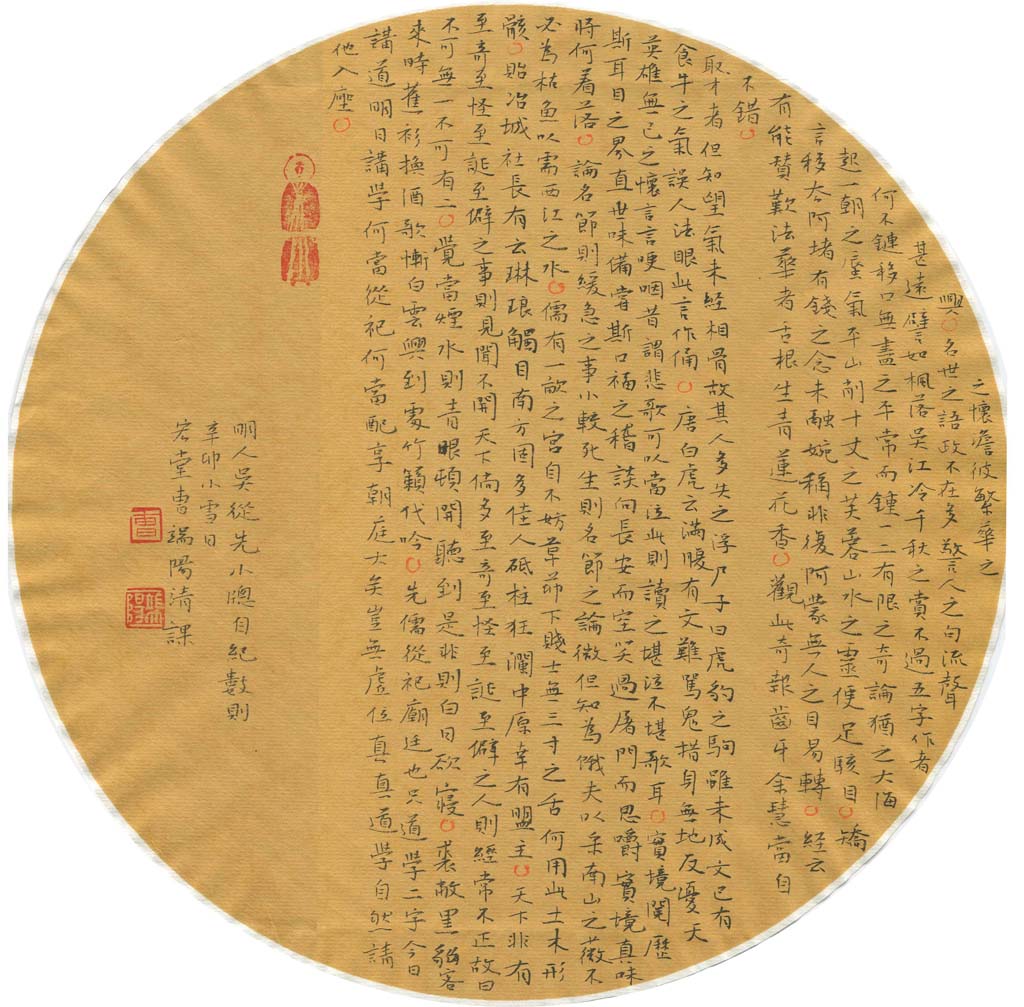 之懷澹彼繁華之
興名世之語政不在多驚人之句流聲
甚遠譬如楓落吳江冷千秋之賞不過五字作者
何不鏈移口無盡之平常而鍾一二有限之奇論猶之大海
起一朝之蜃氣平山削十丈之芙蓉山水之靈便足駭目矯
言移夲阿堵有錢之念未融婉稱非復阿蒙無人之目易轉經云
有能贊歎法華者舌根生青蓮花香觀此奇報齒牙余慧當自
不錯
取才者但知望氣未經相骨故其人多失之浮尸子曰虎豹之駒雖未成文已有
食牛之氣誤人法眼此言作俑唐白虎云滿腹有文難罵鬼措身無地反憂天
英雄無已之懷言言哽咽昔謂悲歌可以當泣此則讀之堪泣不堪歌耳實境閱歷
斯耳目之界直世味備嘗斯口福之稽談向長安而空笑過屠門而思嚼實境真味
將何着落論名節則緩急之事小較死生則名節之論微但知為餓夫以采南山之薇不
必為枯魚以需西江之水儒有一畝之宮自不妨草茆下賤士無三寸之舌何用此土木形
骸貽冶城社長有云琳琅觸目南方固多佳人砥柱狂瀾中原幸有盟主天下非有
至奇至怪至誕至僻之事則見聞不開天下倘多至奇至怪至誕至僻之人則經常不正故曰
不可無一不可有二覺當煙水則青眼頓開聽到是非則白日欲寢裘敝黑貂客
來時蕉衫換酒歌慚白雲興到處竹籟代吟先儒從祀廟廷也只道學二字今日
講道明日講學何當從祀何當配享朝庭大矣豈無虛位真真道學自然請
他入座
明人吳從先小牕自紀數則
辛卯小雪日
宏堂曹端陽清課
曹